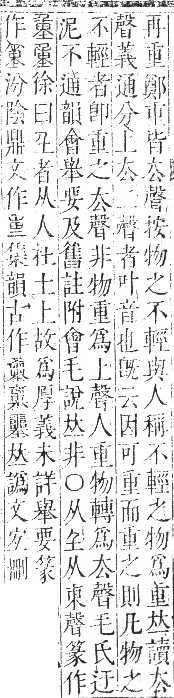 再重鄭重皆去聲按物之不輕與人稱不輕之物爲重𠀤讀去
聲義通分上去二聲者叶音也旣云因可重而重之則凡物之
不輕者卽重之去聲非物重爲上聲人重物轉爲去聲毛氏迂
泥不通韻會舉要及舊註附會毛說𠀤非○从𡈼从東聲篆作
徐曰𡈼者从人在土上故爲厚義未詳舉要篆
作汾陰鼎文作集韻古作𠀤譌文安刪